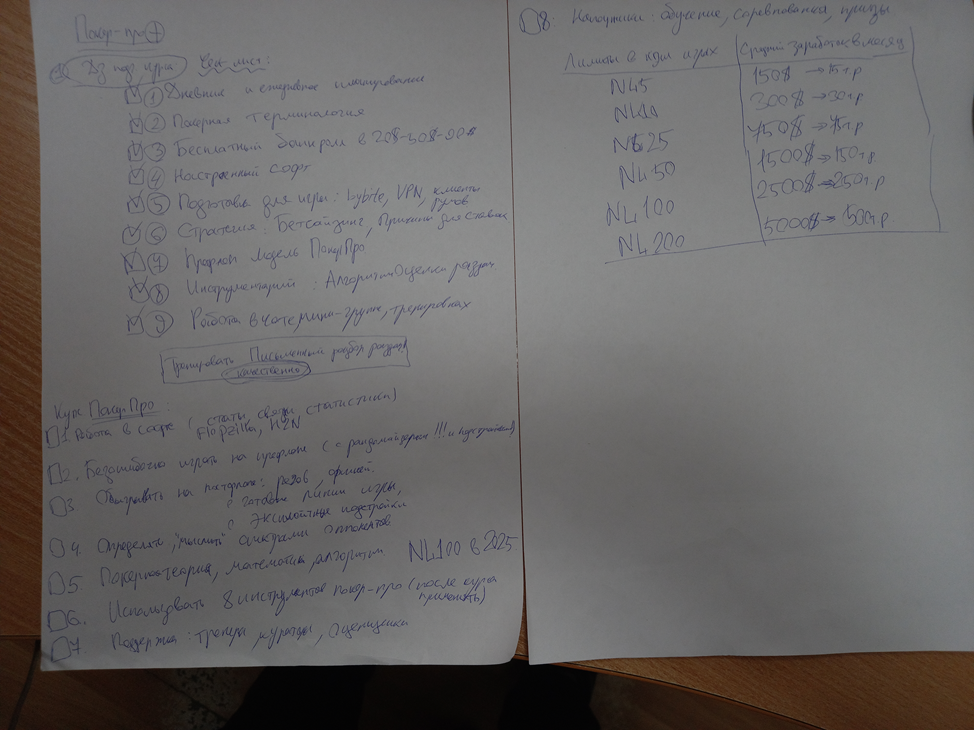 Покер-про
ДЗ под курса Чек-лист:
1 Дневник и ежедневное планирование
2 Покерная терминология
3 Бесплатный банкролл в 20$-50$-90$
4 Настроенный софт
5 Подготовка для игры: bybite, VPN, клиенты румов
6 Стратегия: Бетсайзинг, Причины для ставки
7 модель ПокерПро
8 Инструментарий: Алгоритм Оценки раздач
9 Работа в чате мини-групп, тренировках
Тренировать Письменный разбор раздач!
качественно
Курс ПокерПро:
1. Работа в софте (статы, связи, статистика)
Flopzilla, H2N
2. Безошибочно играть на префлопе (с !!! и )
3 Обыгрывать на постфлопе: регов, фишей.
готовые линии игры,
Эксплойтные подстройки
4. Определять, "мыслить" спектрами оппонентов
5. Покерная теория, математика, алгоритм NL100 в 2025
6. Использовать 8 инструментов покер-про (после курса применять)
7. Поддержка: тренера, кураторы,
8. : обучение, соревнования, призы
Лимиты в кэш играх Средний заработок в месяц
NL5 150$ → 15т.р
NL10 300$ → 30т.р
NL25 750$ → 75т.р
NL50 1500$ → 150т.р.
NL100 2500$ → 250т.р
NL200 5000$ → 500т.р